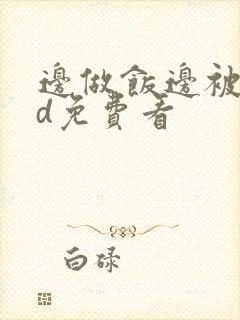 邊做飯邊被
d免費看
白碌